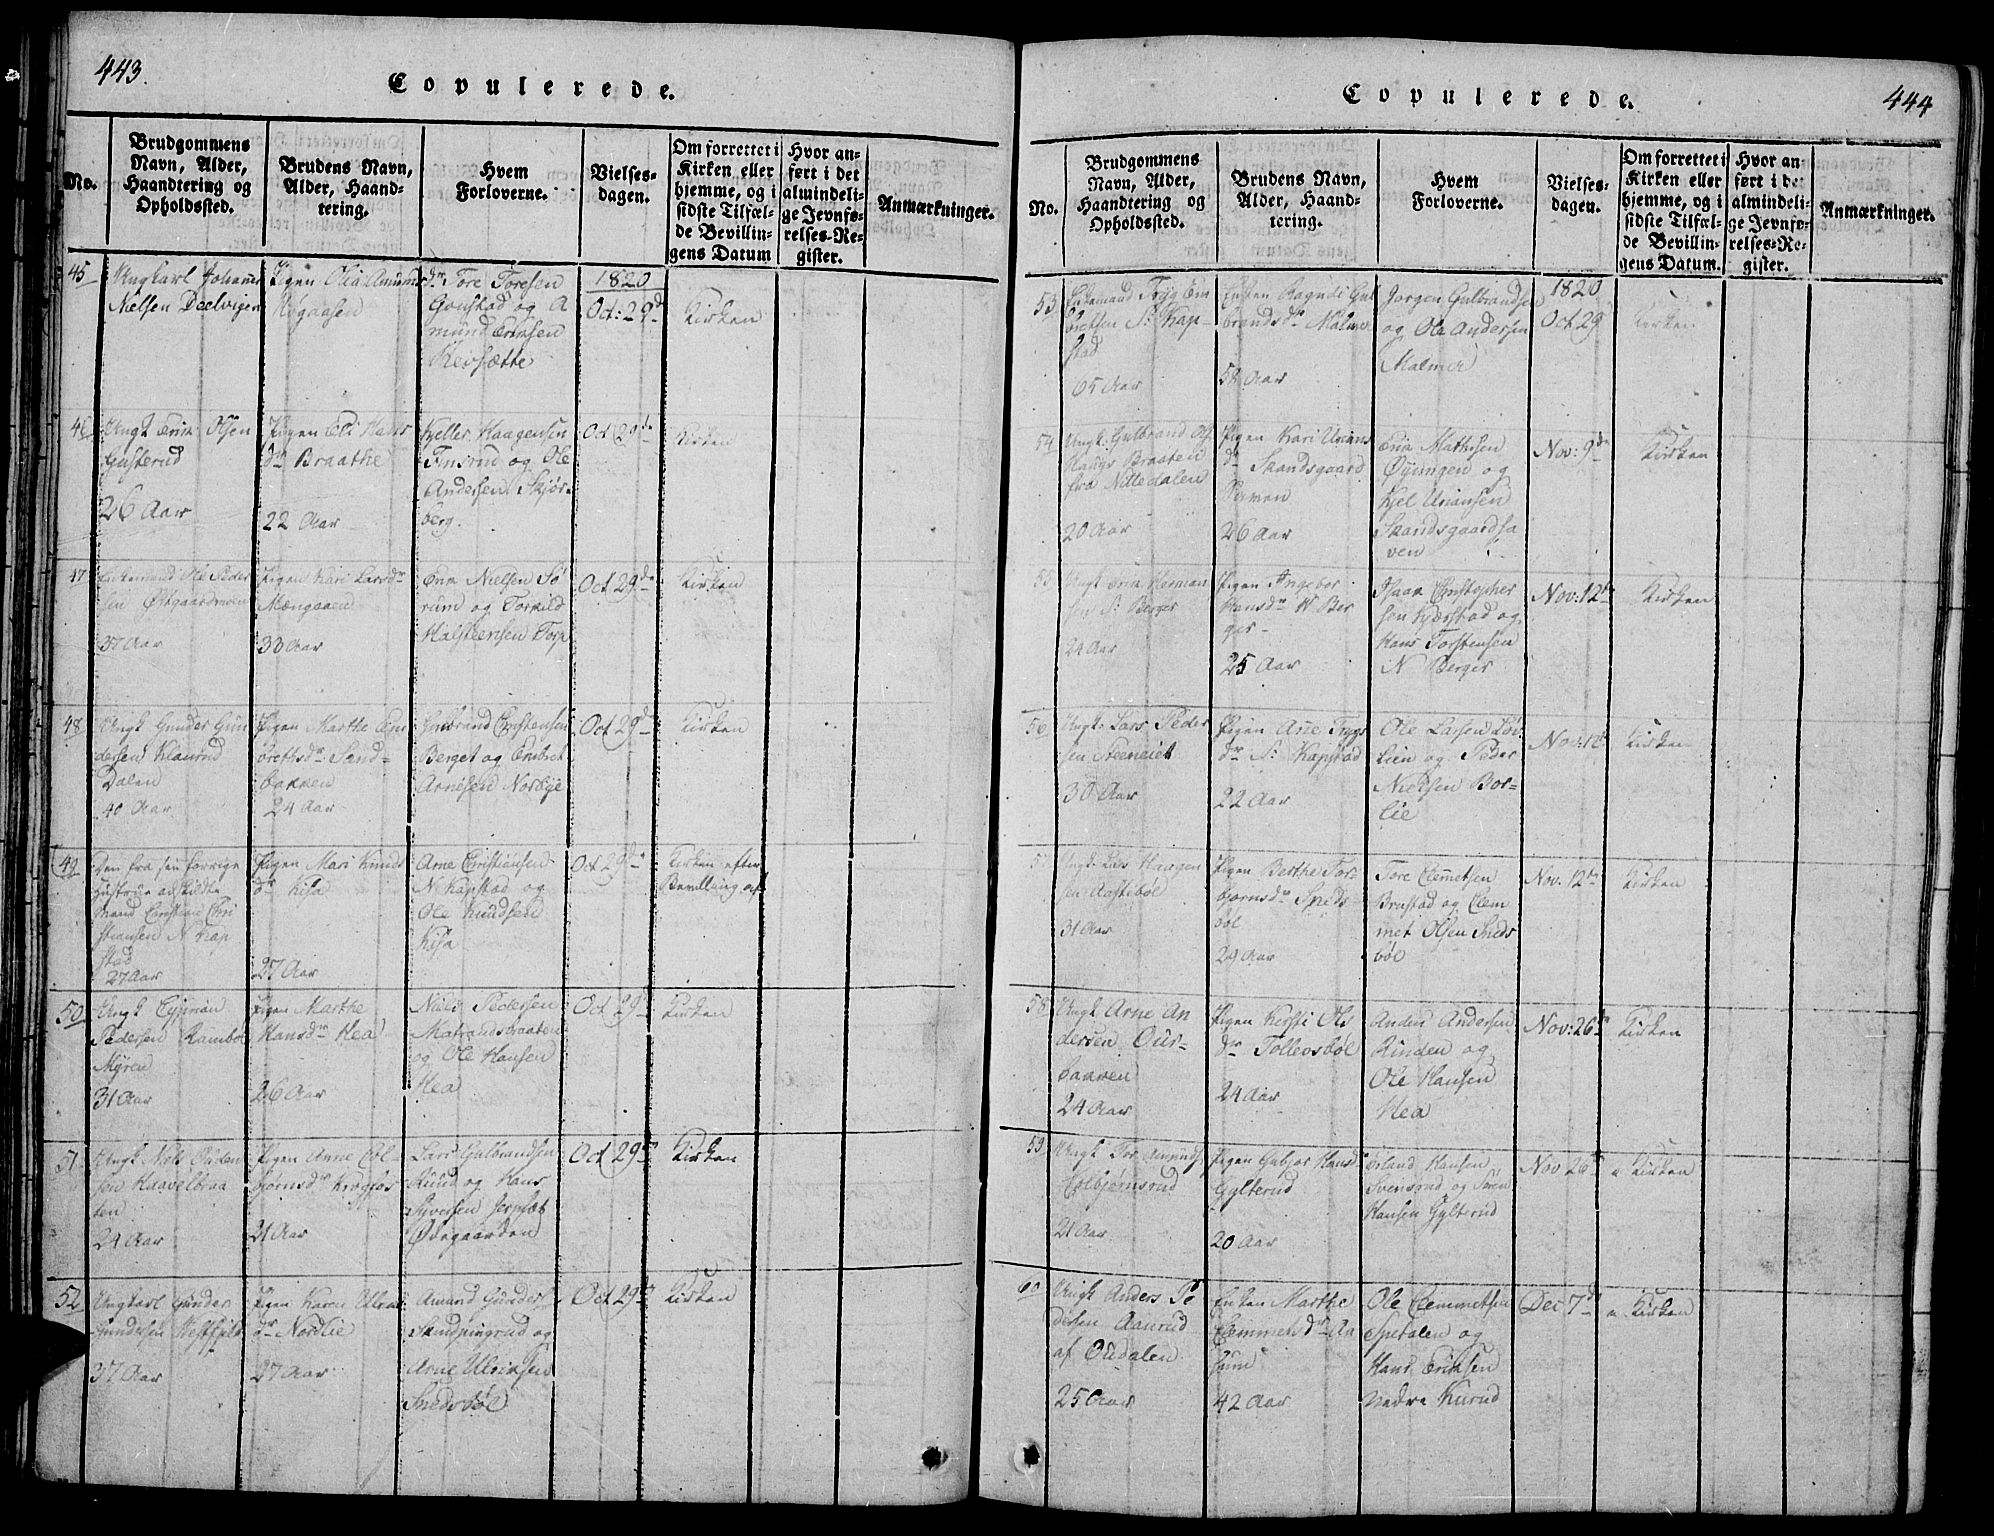 443.
Copulerede.
No.
Brudgommens
Navn, Alder,
Haandtering og
Opholdssted.
Brudens Navn,
Alder, Haand-
tering.
Hvem
Forloverne.
Vielses-
dagen.
Om forrettet i
Kirken eller
hjemme, og i
sidste Tilfæl-
de Bevillin-
gens Datum
Hvor an-
ført i det
almindeli-
ge Jevnfø-
relses-Re-
gister.
Anmærkninger.
45
Ungkarl Johannes
Nielsen
Pigen Olia Amunds
dr
Tore Toresen
Gonstad og A
mund
1820
Oct: 29d
Kirken
46
Ungk Erik Olsen
Gusterud
26 Aar
Pigen Eli Hans
dr Braathe
22 Aar
Kjeller Haagensen
Finsrud og Ole
Andersen Skjør-
berg.
Oct 29de
Kirken
47
Enkemand Ole Peder
sen
37 Aar
Pigen Kari Larsdr
Mængaaen
33 Aar
Erik Nielsen Sø
rum og Torkild
Halsteensen Torp
Oct 29de
Kirken
48
Ungk Gunder Gun
dersen Klanrud
Dalen
40 Aar
Pigen Marthe Em
brethsdr Sand-
bakken
24 Aar
Gulbrand Christensen
Berget og Embret
Arnesen Norbye
Oct 29d
Kirken
49
Den fra sin forrige
Hustrue adskildte
Mand Christian Chri
stiansen N Kap
stad
27 Aar
Pigen Mari Knuds
dr Kisa
27 Aar
Arne Christiansen
N Kapstad og
Ole Knudsen
Kisa
Oct 29de
Kirken efter
Bevilling af
50
Ungk
Pedersen
Myren
31 Aar
Pigen Marthe
Hansdr Hea
26 Aar
Niels Pedersen
Matrandbraaten
og Ole Hansen
Hea
Oct 29de
Kirken
51
Ungk Niels
sen Haavelbraa
ten
24 Aar
Pigen Anne Col-
bjørnsdr Krogfos
21 Aar
Lars Gulbrandsen
Ruud og Hans
Syversen
Ødegaarden
Oct 29de
Kirken
52
Ungkarl Gunder
Gundersen
37 Aar
Pigen Karen Ulriks
dr Nordlie
27 Aar
Amund Gunders
og
Arne Ulriksen
Snedsbøl
Oct 29de
Kirken
Copulerede.
444
No.
Brudgommens
Navn, Alder,
Haandtering og
Opholdssted.
Brudens Navn,
Alder, Haand-
tering.
Hvem
Forloverne.
Vielses-
dagen.
Om forrettet i
Kirken eller
hjemme, og i
sidste Tilfæl-
de Bevillin-
gens Datum.
Hvor an-
ført i det
almindeli-
ge Jevnfø-
relses-Re-
gister.
Anmærkninger.
53
Enkemand Tryg Em
bretsen S: Kap-
stad
65 Aar
Enken Ragndi Gul
brandsdr Malmer
58 Aar
Jørgen Gulbrandsen
og Ole Andersen
Malmer
1820
Oct 29
Kirken
54
Ungk. Gulbrand Ols
Haugs Braaten
fra Nittedalen
20 Aar
Pigen Kari Urians
dr Skandsgaard
26 Aar
Erik Mathisen
Øyungen og
Kjel Uriansen
Skandsgaardsha
ven
Nov: 9de
Kirken
55
Ungk Erik Herman
sen S: Berger
24 Aar
Pigen Ingebor
Hansdr N Ber
ger
25 Aar
Isaak Christopher
sen Kjerstad og
Hans Torstensen
N Berger
Nov: 12te
Kirken
56
Ungk Lars Peder
sen
30 Aar
Pigen Ane Trygs
dr S: Kapstad
22 Aar
Ole Larsen Løv
lien og Peder
Nielsen Bor-
lie
Nov: 12t
Kirken
57
Ungk Lars Haagen
sen Aastebøl
31 Aar
Pigen Berthe Tor-
bjørnsdr Sneds-
bøl
29 Aar
Tore Clemetsen
Brustad og Clem
met Olsen Sneds
bøl
Nov. 12te
Kirken
58
Ungk Arne An
dersen Our-
bakken
24 Aar
Pigen Kersti Ols
dr Tollevsbøl
24 Aar
Anders Andersen
Runden og
Ole Hansen
Hea
Nov: 26de
Kirken
59
Ungk Tor Amunds
Colbjørnsrud
21 Aar
Pigen Gubjør Hansd
Gylterud
20 Aar
Erland Hansen
Svensrud og Sven
Hansen Gylterud
Nov 26de
Kirken
60
Ungk Anders Pe
dersen Aanrud
af Oudalen
25 Aar
Enken Marthe
Clemmetsdr Aa
42 Aar
Ole Clemmetsen
Spetalen og
Hans Eriksen
Nedre Kurud
Dec 7de
Kirken